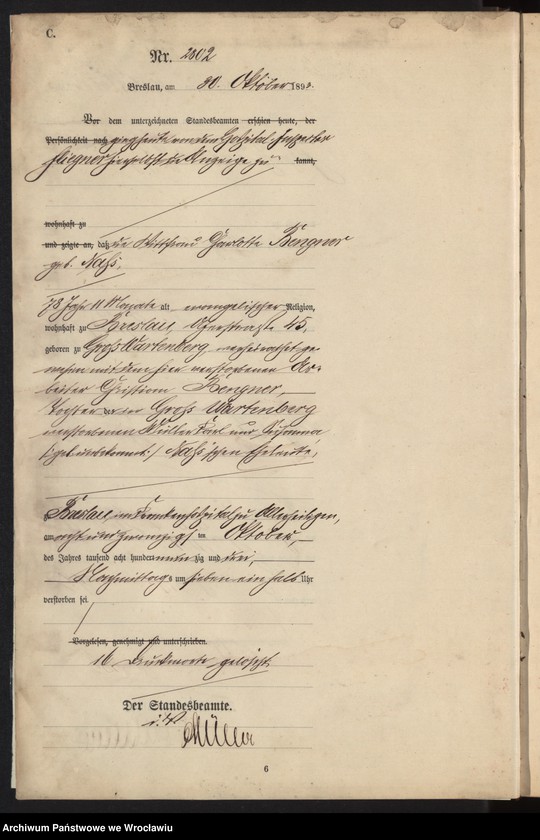 C.
Nr. 2802
Breslau, am 30. Oktober 1893.
Vor dem unterzeichneten Standesbeamten erschien heute, der
Persönlichkeit nach ging heute von dem Hospital-Inspektor
Fliegner hierselbst die Anzeige zu kannt,
wohnhaft zu
und zeigte an, daß die Wittfrau Charlotte Bengner
geb. Nass,
78 Jahr 11 Monate alt, evangelischer Religion,
wohnhaft zu Breslau, 45,
geboren zu Gross Wartenberg, verheirathet ge-
wesen mit dem hier verstorbenen Ar-
beiter Christian Bengner,
Tochter der zu Gross Wartenberg
verstorbenen Müller Karl und Susanna
/:geb. unbekannt:/ Nass'schen Eheleute,
Breslau, im Krankenhospital zu Allerheiligen,
am acht und zwanzigsten Oktober,
des Jahres tausend acht hundert neun zig und drei,
Nachmittags um sieben ein halb Uhr
verstorben sei.
Vorgelesen, genehmigt und unterschrieben.
16 Druckworte gelöscht.
Der Standesbeamte.
i. V.
Müller
6
Archiwum Państwowe we Wrocławiu